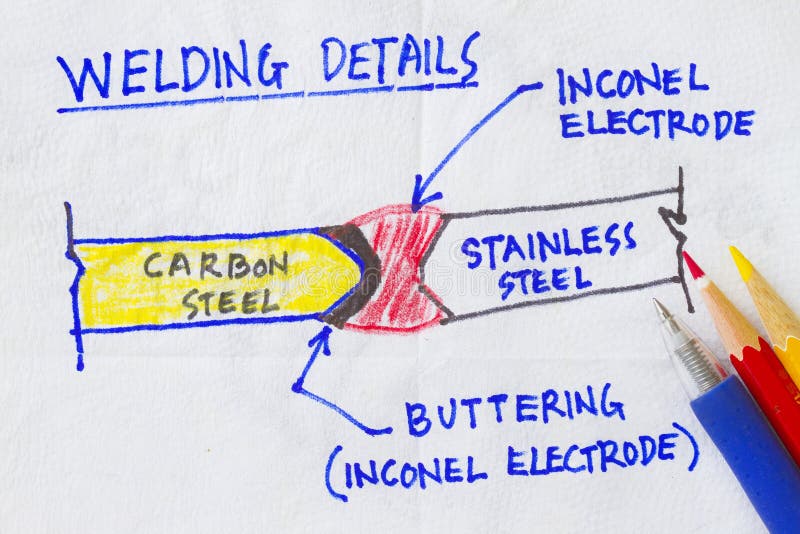 WELDING DETAILS
INCONEL
ELECTRODE
CARBON
STEEL
STAINLESS
STEEL
BUTTERING
(INCONEL ELECTRODE)
dreamstime